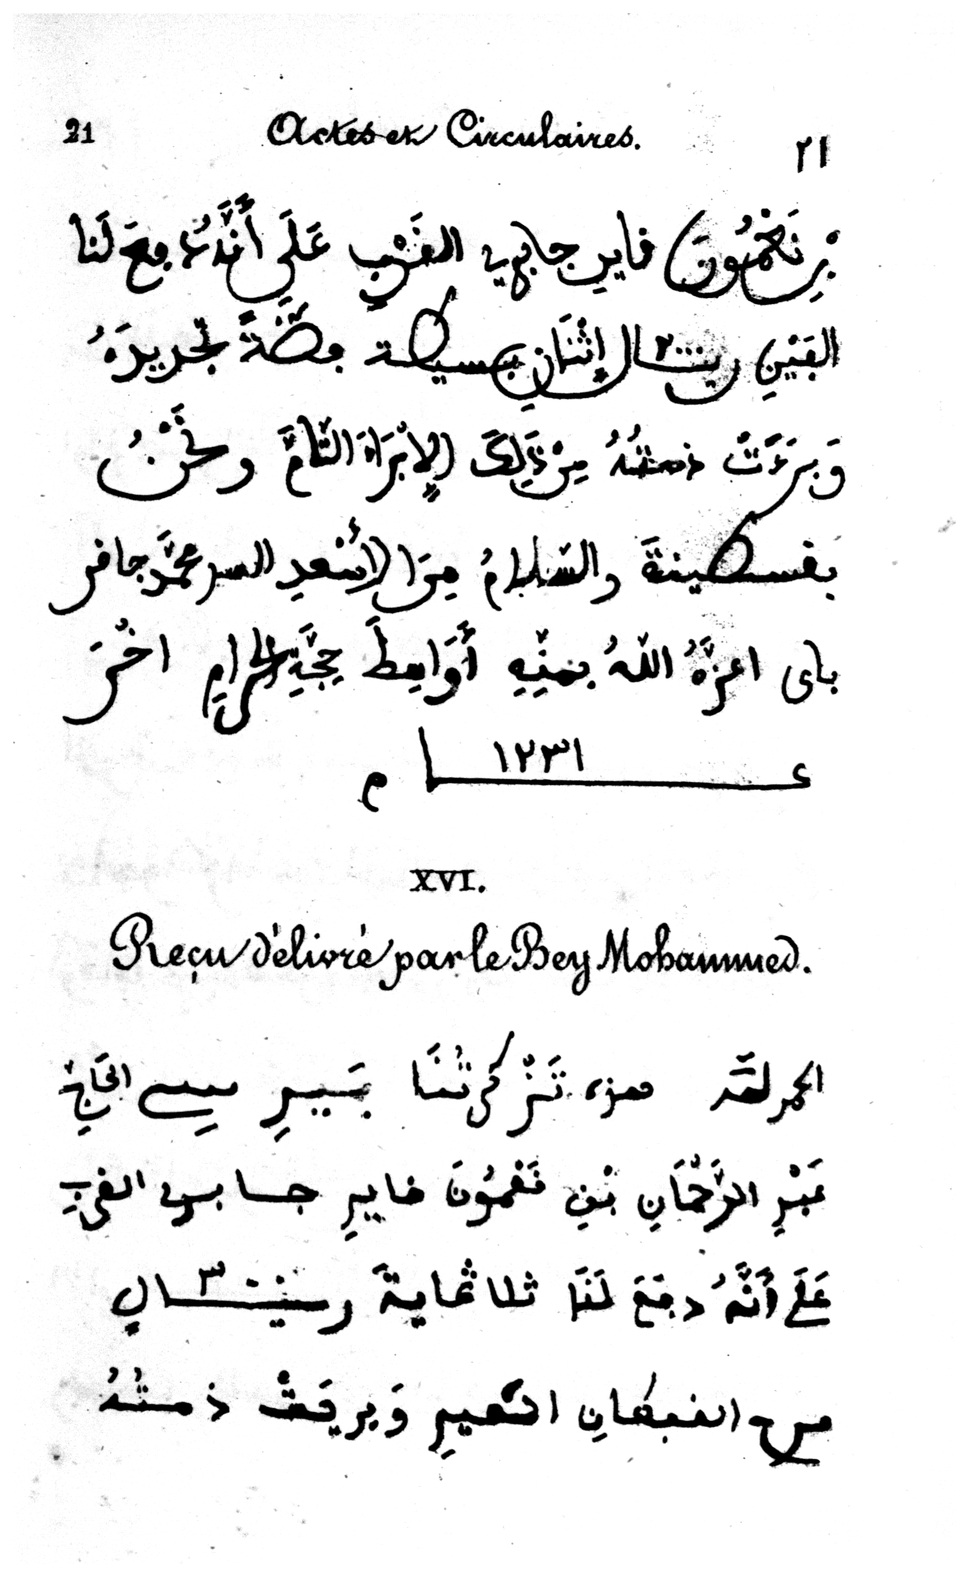 21 Actes et Circulaires. ٢١
بْنِ نَعْمُونَ فايد جابري الغَرْبِ عَلَى أَنَّهُ دفعَ لَنا
الفَيْنِ ريــال ٢٠٠٠ إثْنَانِ بسيطة فضّةً جديدةُ
وَبَرِءَتْ ذمتُهُ مِنْ ذَلِكَ الإبْرَاءَ التَّامَّ ونَحْنُ
بقسطينةَ والسَّلامُ مِنَ الأسْعدِ السيد محمَّد جافر
باي اعزَّهُ اللّهُ بمنّهِ أَوَاسِطَ حِجَّةِ الحرامِ اخُرَ
١٢٣١ عـام
XVI.
Reçu délivré par le Bey Mohammed.
الحمد لله هذه تَذْكرتُنَا بَيَدِ سِي الحَاجّ
عَبْدِ الرَّحْمَانِ بْنِ نَعْمُونَ فايدِ جـابري الغربِ
عَلَى أَنَّهُ دفعَ لَنَا ثلاثمايةً ريــالٍ ٣٠٠
وَبريَتْ ذمتُهُ